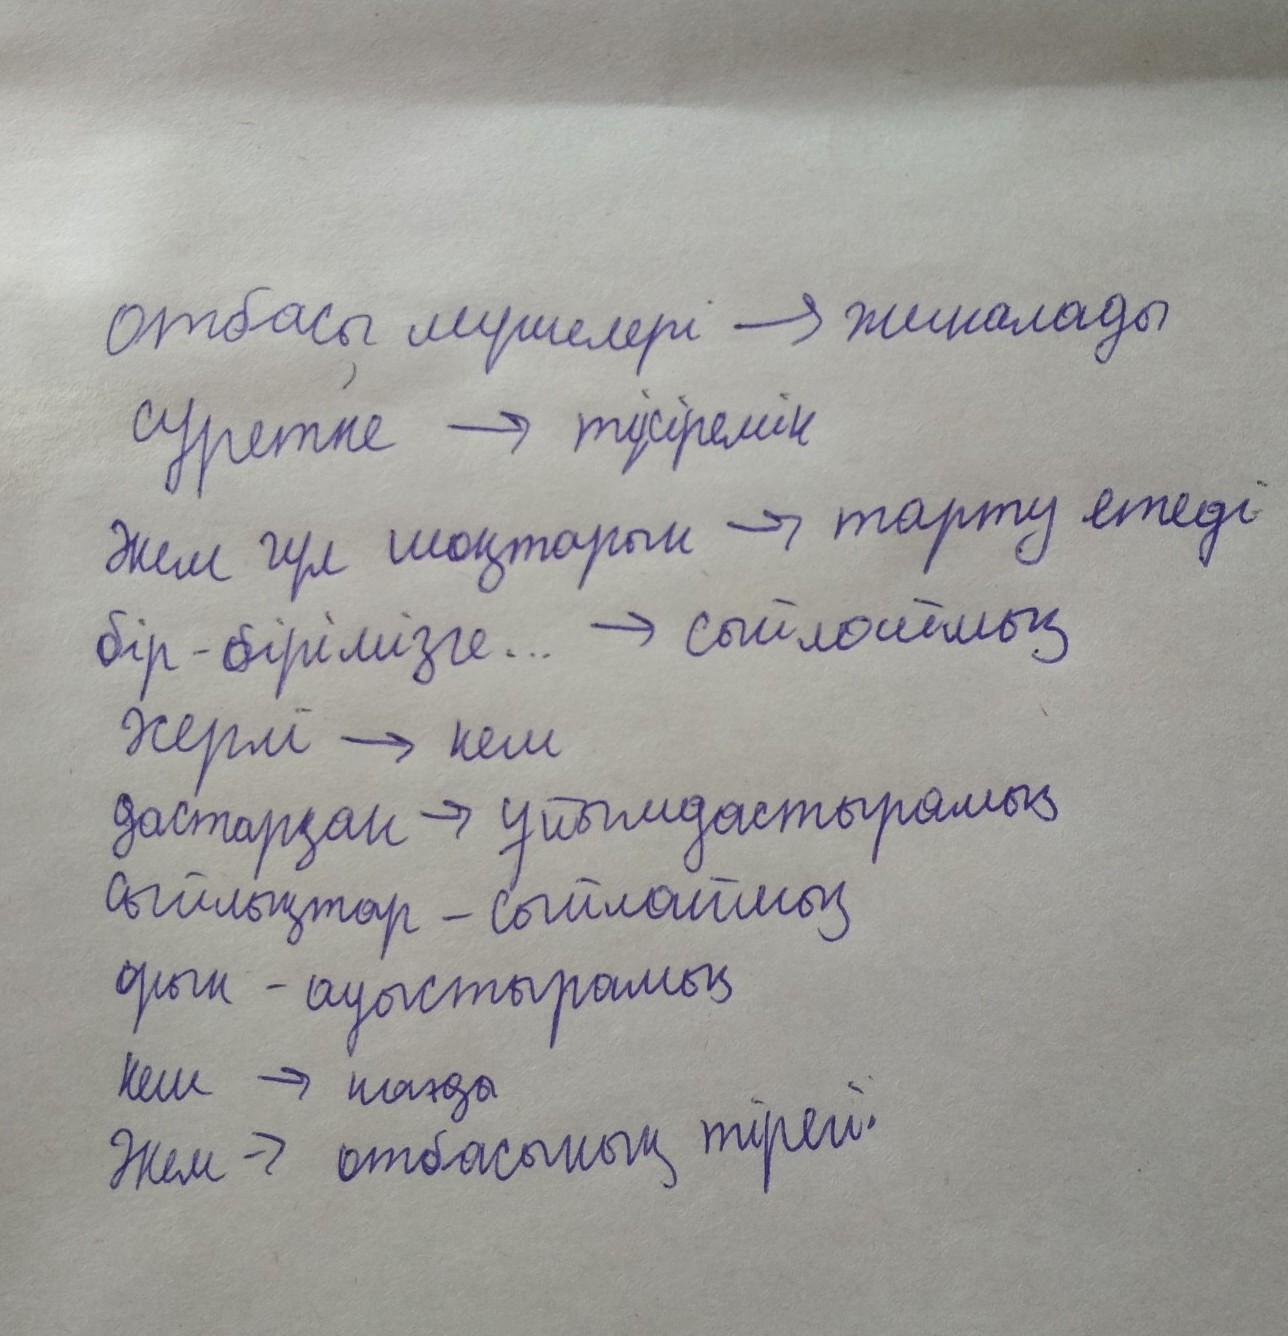 отбасы мүшелері → жиналады
суретке → түсіремін
Әкем гүл шоқтарын → тарту етеді
бір-бірімізге... → сыйлаймыз
Әсерлі → кеш
дастарқан → ұйымдастырамыз
Сыйлықтар - сыйлаймыз
орын - ауыстырамыз
кеш →
Әкем → отбасының тірегі.